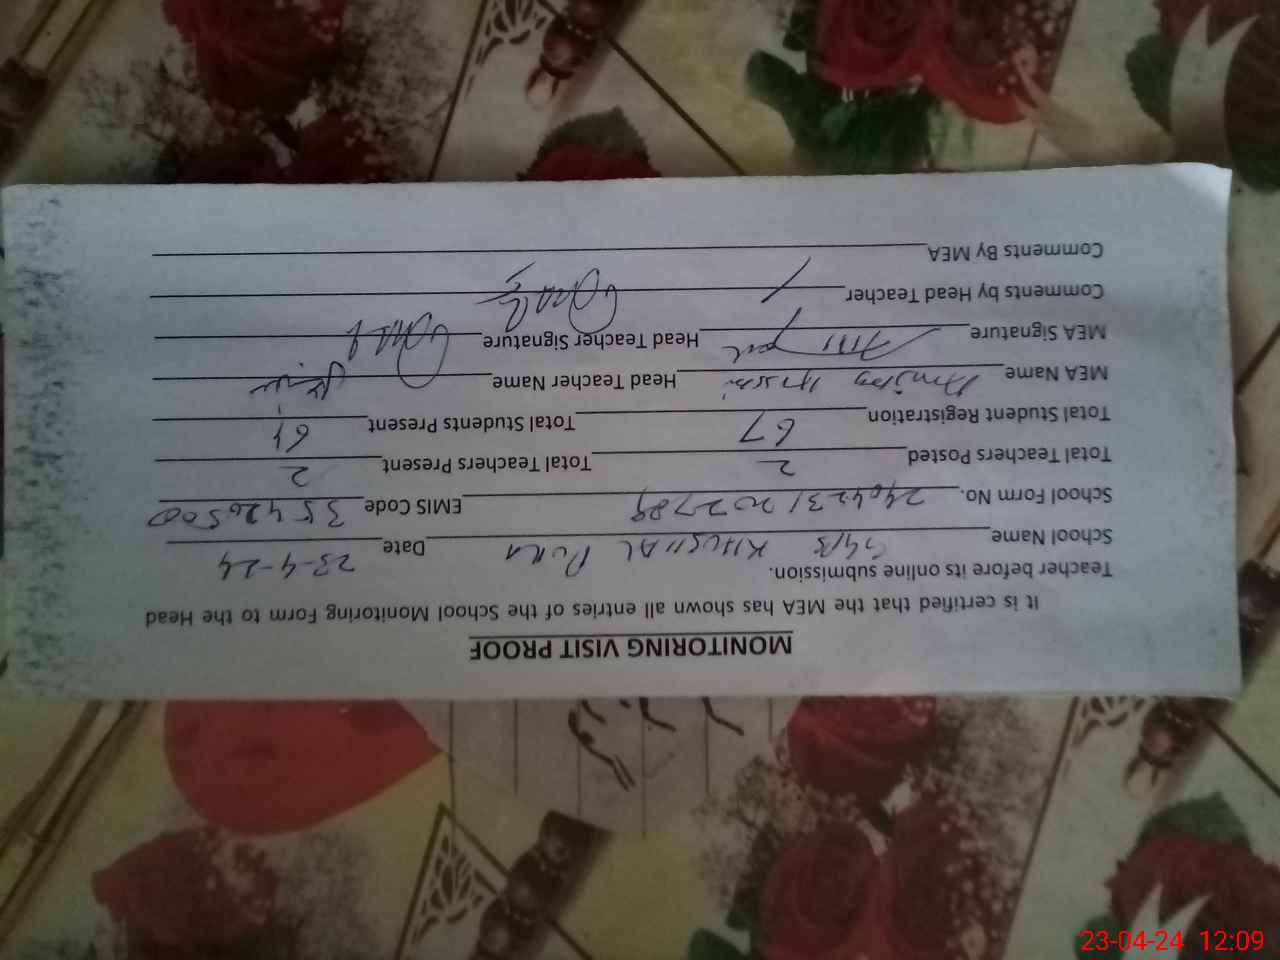 MONITORING VISIT PROOF
It is certified that the MEA has shown all entries of the School Monitoring Form to the Head
Teacher before its online submission.
School Name KHUSHAL PURA Date 23-4-24
School Form No. EMIS Code 35420500
Total Teachers Posted 2 Total Teachers Present 2
Total Student Registration 67 Total Students Present 61
MEA Name Head Teacher Name
MEA Signature Head Teacher Signature
Comments by Head Teacher
Comments By MEA
23-04-24 12:09